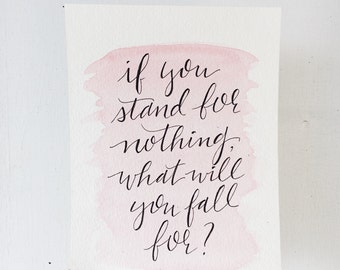 if you
stand for
nothing,
what will
you fall
for?